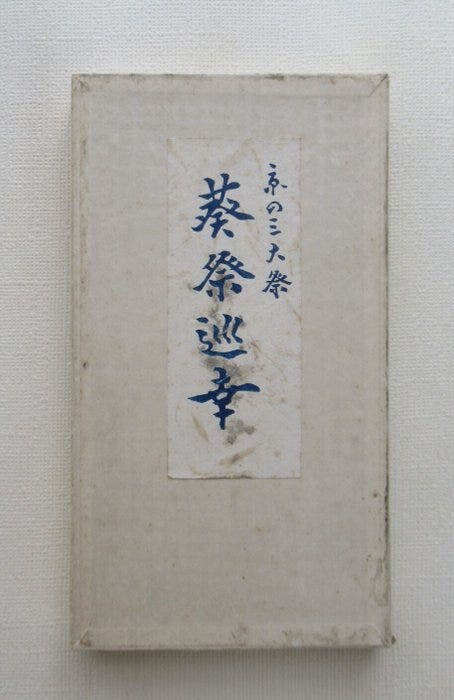 京の三大祭
葵祭巡幸